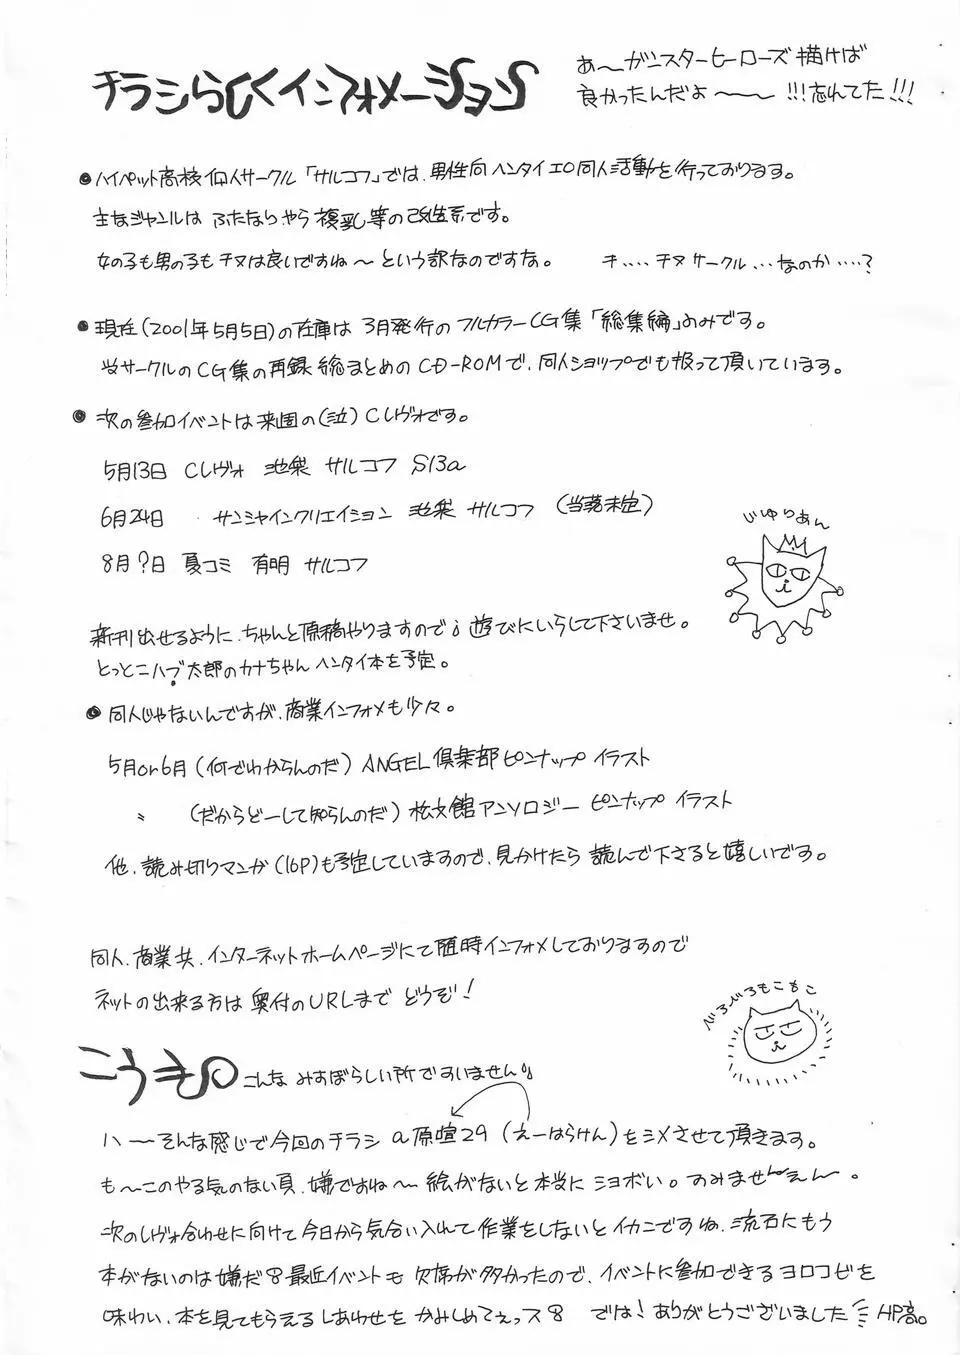 チラシらしくインフォメーション
あ～ガニスターヒーローズ描けば
良かったんだよ～～ !!!忘れてた!!!
●ハイペット高校個人サークル「サルコフ」では、男性向ヘンタイエロ同人活動を行っております。
主なジャンルは ふたなりやら複乳等の改造系です。
女の子も男の子もチヌは良いですね～という訳なのですな。 チ....チヌサークル...なのか....?
●現在(2001年5月5日)の在庫は 3月発行の フルカラーCG集「総集編」のみです。
当サークルのCG集の再録 総まとめのCD-ROMで、同人ショップでも扱って頂いています。
●次の参加イベントは来週の(泣)Cレヴォです。
5月13日 Cレヴォ 池袋 サルコフ S13a
6月24日 サンシャインクリエイション 池袋 サルコフ (当落未定)
8月?日 夏コミ 有明 サルコフ
じゆりあん
新刊出せるように、ちゃんと原稿やりますので。遊びにいらして下さいませ。
とっとこハブ太郎のカナちゃん ヘンタイ本を予定。
●同人じゃないんですが、商業インフォメも少々。
5月or6月(何でわからんのだ) ANGEL倶楽部ピンナップ イラスト
〃 (だからどーして知らんのだ) 松文館アンソロジー ピンナップ イラスト
他、読み切りマンガ(16P)も予定していますので、見かけたら 読んで下さると嬉しいです。
同人、商業共、インターネットホームページにて随時インフォメしておりますので
ネットの出来る方は 奥付のURLまで どうぞ!
べろべろもこもこ
こうき こんな みすぼらしい所ですいません
ハ～そんな感じで今回のチラシ a原喧29 (えーはらけん)をシメさせて頂きます。
も～このやる気のない頁、嫌ですね～ 絵がないと本当に ショボい。すみませ～えん～。
次のレヴォ合わせに向けて今日から気合い入れて作業をしないとイカンですね、流石にもう
本がないのは嫌だ 最近イベントも 欠席が多かったので、イベントに参加できるヨロコビを
味わい、本を見てもらえるしあわせを かみしめてぇっス では!ありがとうございました HP高。